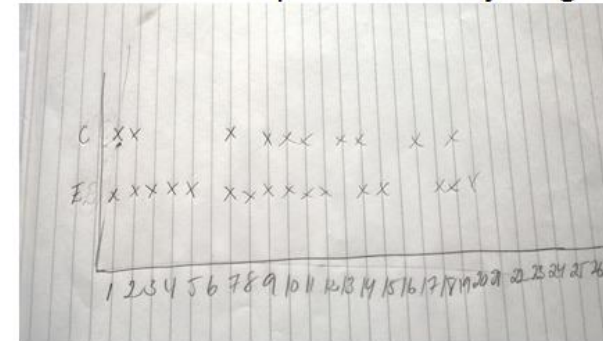 C x x x x x x x x x x
E x x x x x x x x x x x x x x x x
1 2 3 4 5 6 7 8 9 10 11 12 13 14 15 16 17 18 19 20 21 22 23 24 25 26